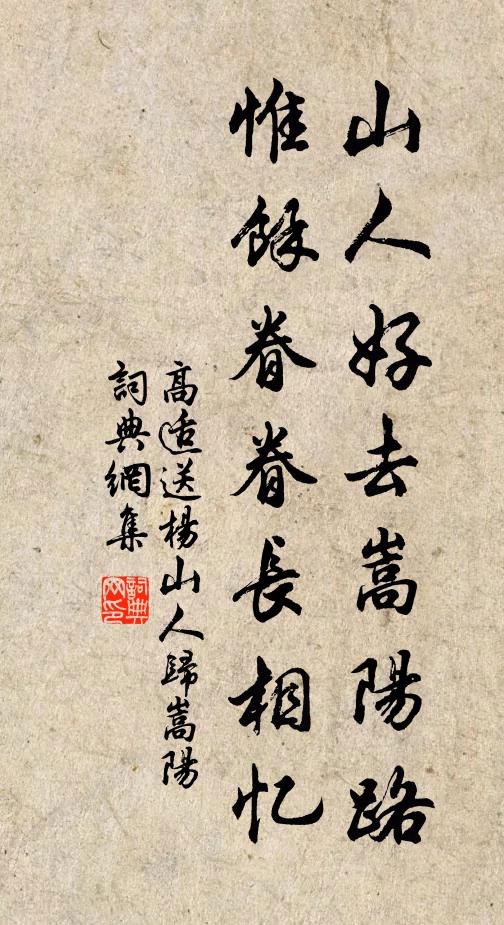 山人好去嵩陽路
惟餘眷眷長相忆
高适送楊山人歸嵩陽
詞典網集
詞典
网印